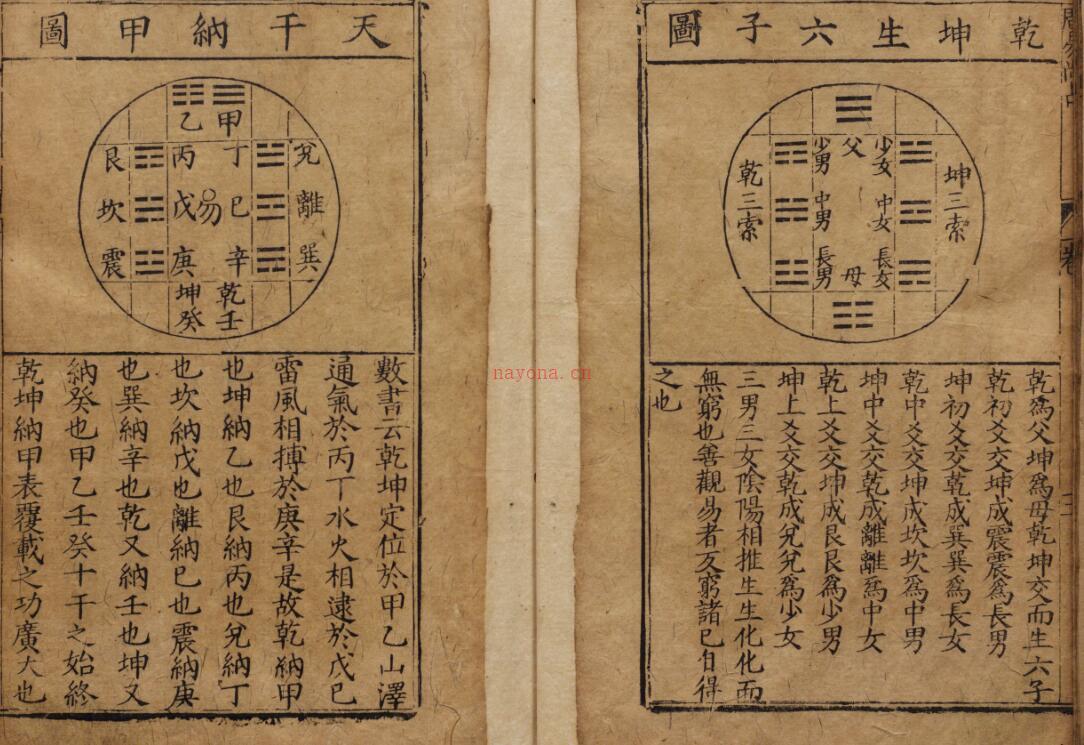 乾坤生六子圖
坤三索
少女
中女
長女
父
母
少男
中男
長男
乾三索
乾爲父坤爲母乾坤交而生六子
乾初爻交坤成震震爲長男
坤初爻交乾成巽巽爲長女
乾中爻交坤成坎坎爲中男
坤中爻交乾成離離爲中女
乾上爻交坤成艮艮爲少男
坤上爻交乾成兌兌爲少女
三男三女陰陽相推生生化化而
無窮也善觀易者反窮諸已自得
之也
天干納甲圖
兌
離
巽
甲
丁
巳
辛
乾壬
易
乙
丙
戊
庚
坤癸
艮
坎
震
數書云乾坤定位於甲乙山澤
通氣於丙丁水火相逮於戊巳
雷風相搏於庚辛是故乾納甲
也坤納乙也艮納丙也兌納丁
也坎納戊也離納巳也震納庚
也巽納辛也乾又納壬也坤又
納癸也甲乙壬癸十干之始終
乾坤納甲表覆載之功廣大也
nayona.cn